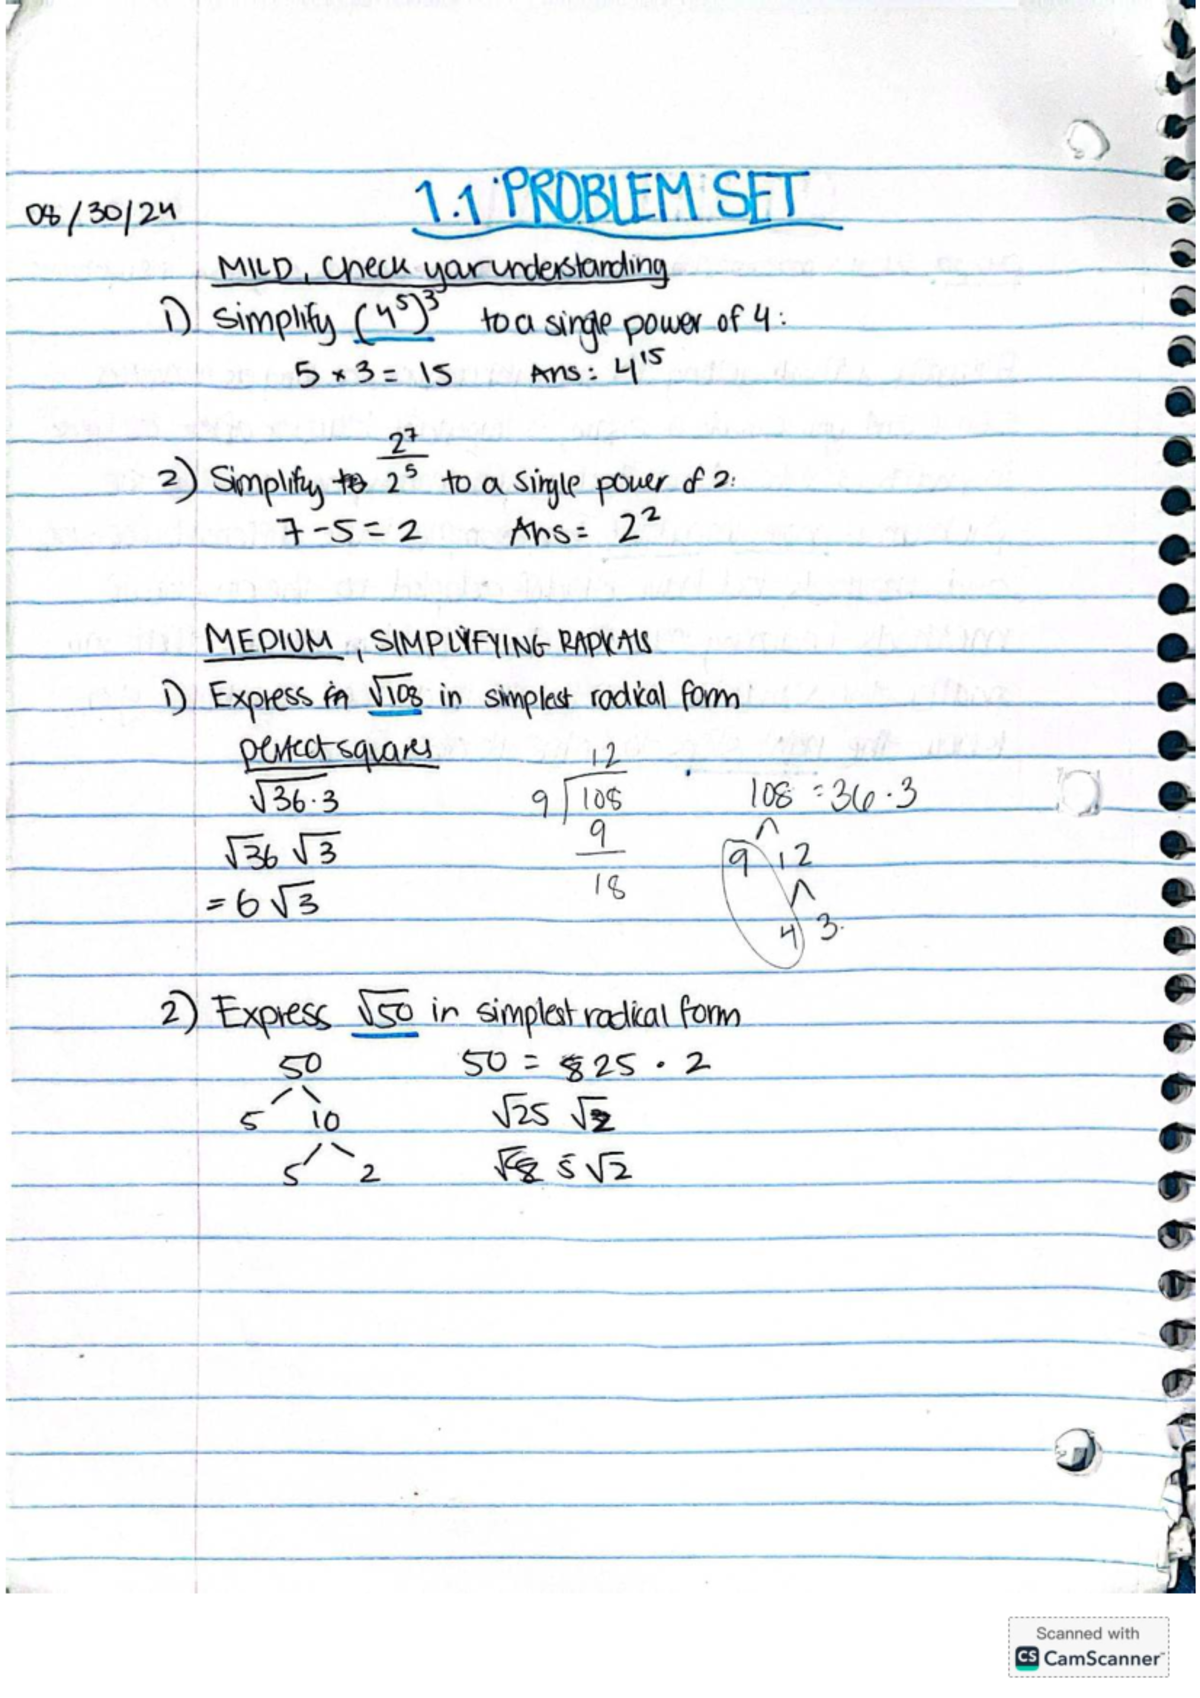 1.1 PROBLEM SET
08/30/24
MILD, Check your understanding
1) Simplify (4⁵)³ to a single power of 4:
5 × 3 = 15 Ans: 4¹⁵
2) Simplify to 2⁷/2⁵ to a single power of 2:
7 - 5 = 2 Ans = 2²
MEDIUM, SIMPLYFYING RADICALS
1) Express in √108 in simplest radical form
perfect squares 12
√36·3 9 √108 108 = 36·3
√36 √3 9 9 12
= 6√3 18
4 3.
2) Express √50 in simplest radical form
50 50 = 25 · 2
5 10 √25 √2
5 2 5√2
Scanned with
CS CamScanner